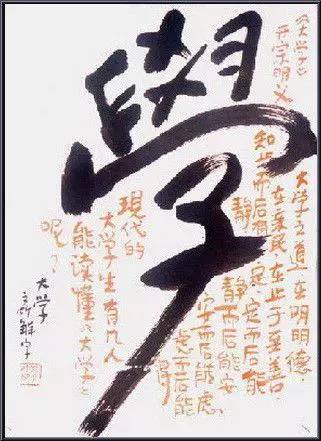 學
《大学》
开宗明义
大学之道,在明明德.
在亲民,在止于至善.
知止而后有定,定而后能
静,静而后能安
安而后能虑.
虑而后能
得
现代的
大学生有几人
能读懂《大学》
呢?
大学
解字